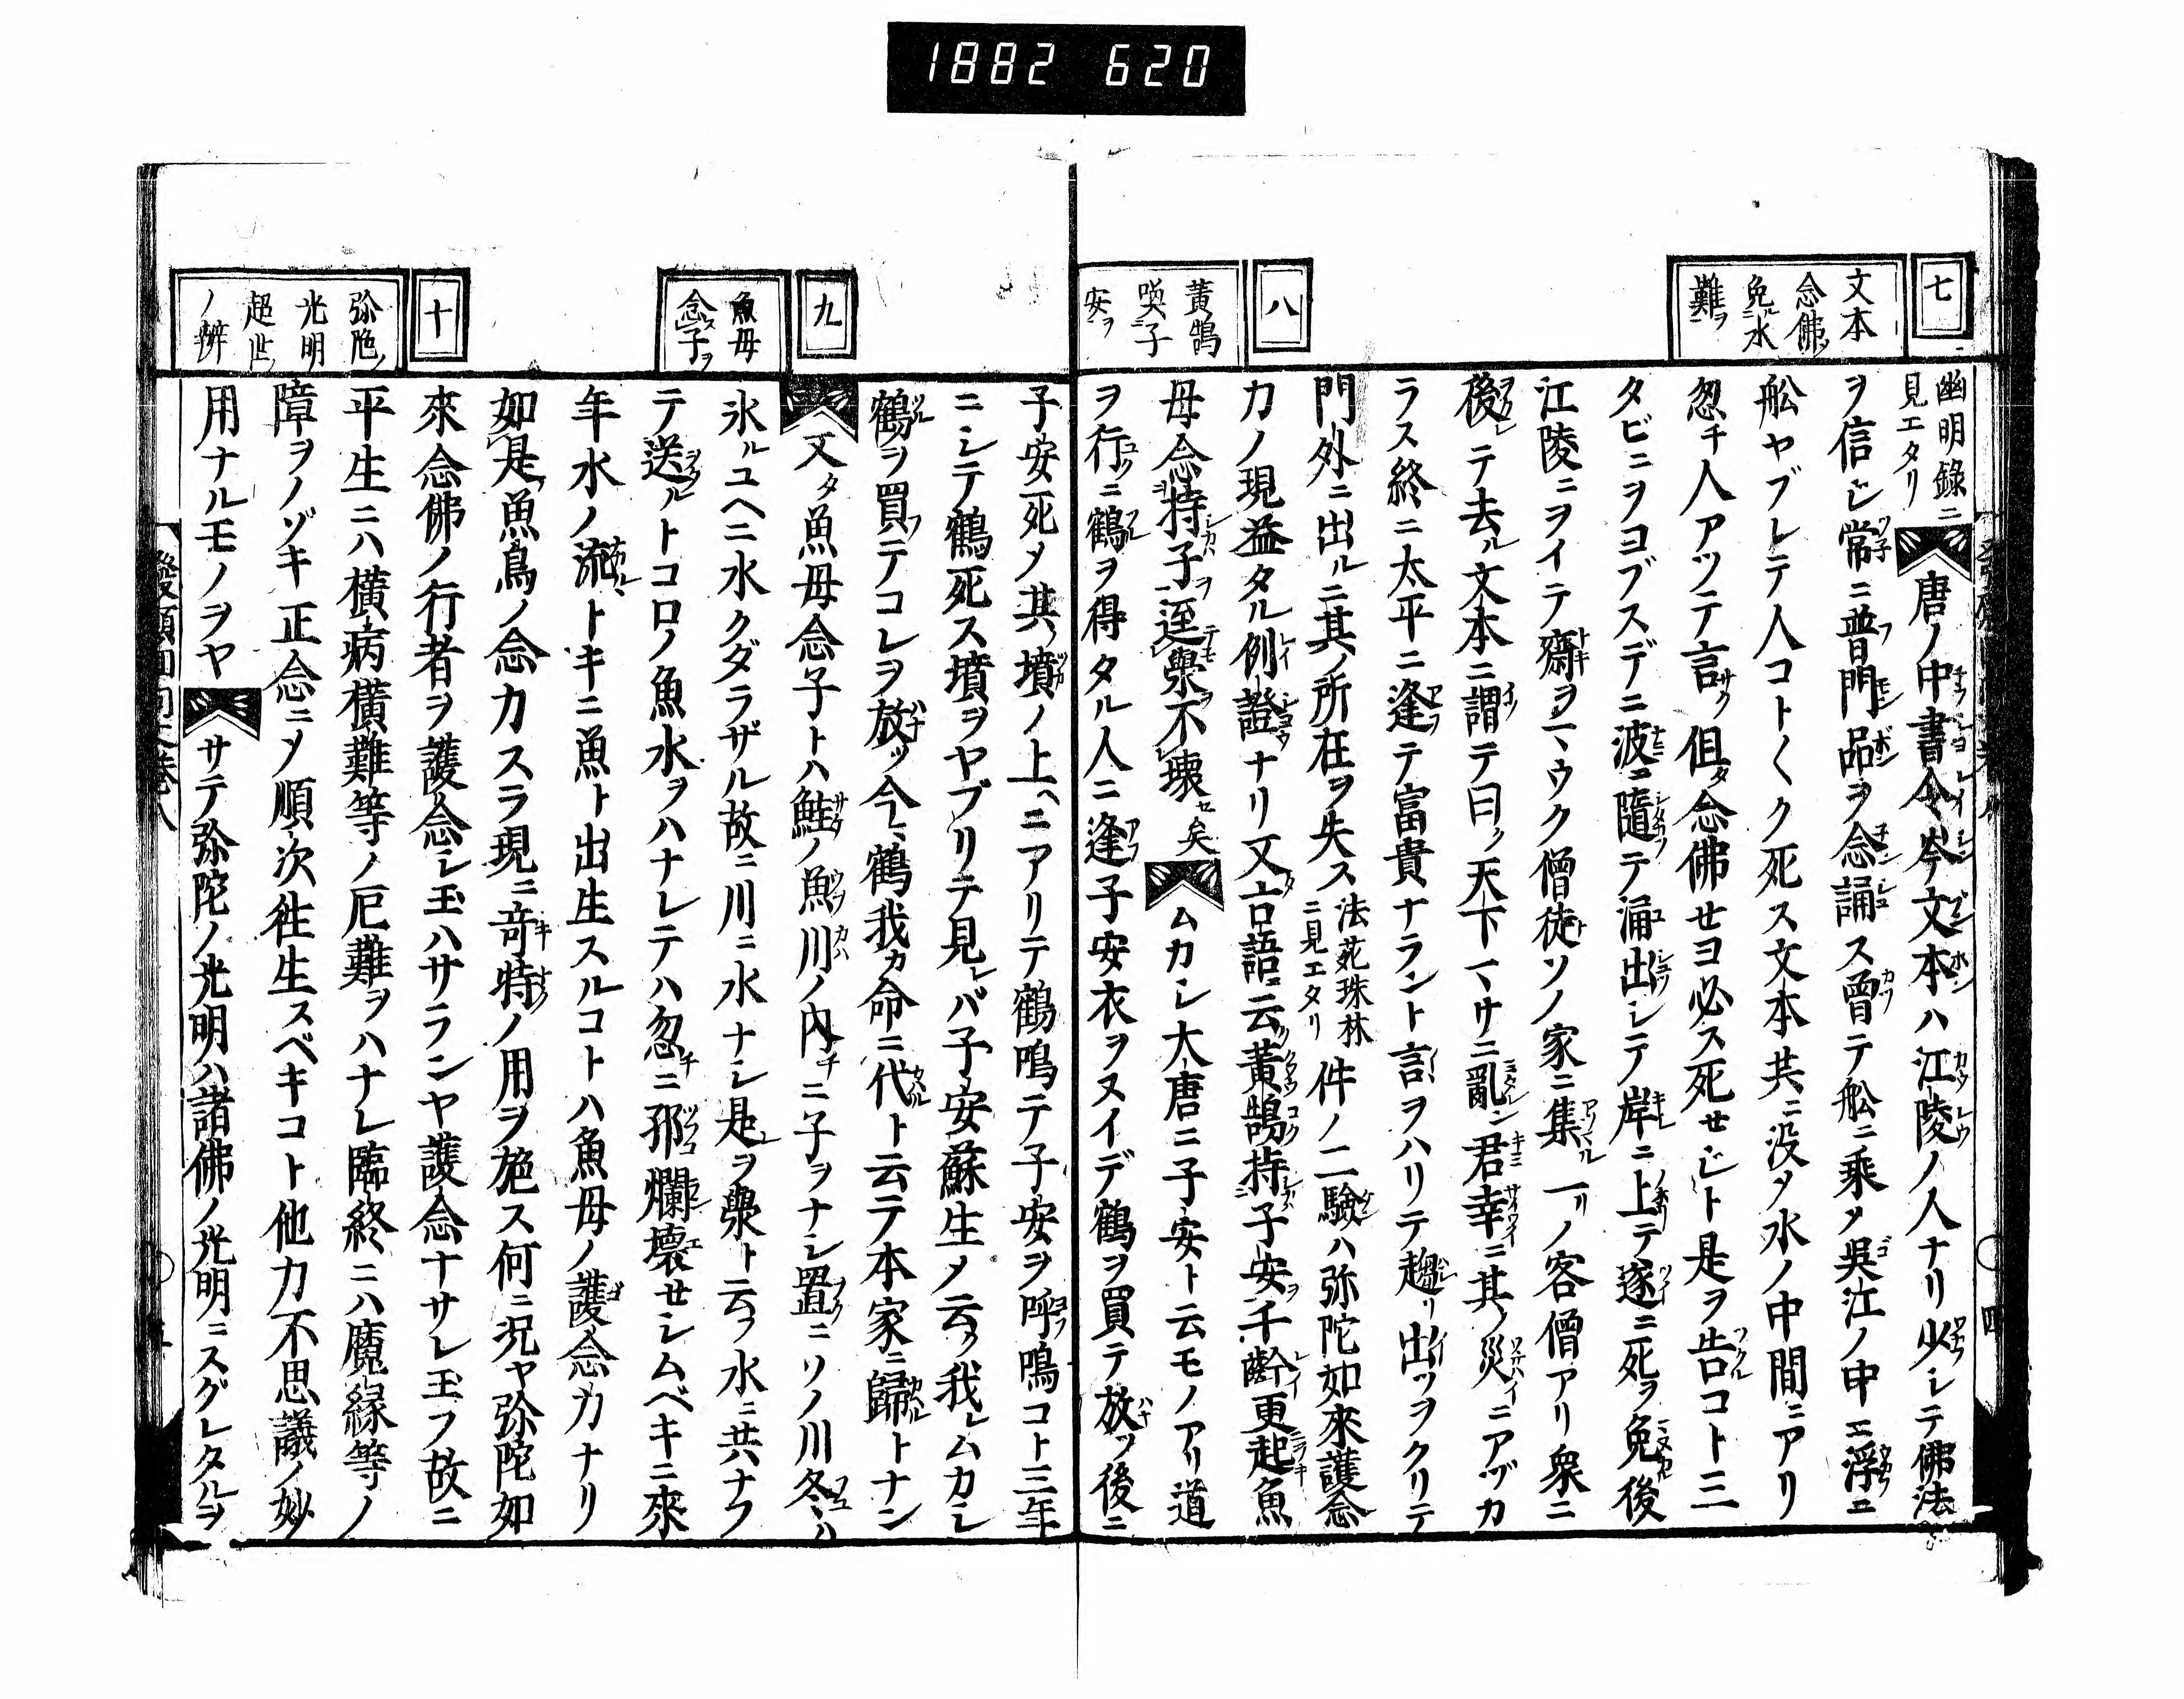 1882 620
七
文本
念佛ノ
免ルニ水
難ヲ
八
黃鵠
喚ニ子
安ヲ
幽明錄ニ
見エタリ
唐ノ中書令岑文本ハ江陵ノ人ナリ少シテ佛法
ヲ信ジ常ニ普門品ヲ念誦ス曾テ舩ニ乘メ吳江ノ中エ浮ニ
舩ヤブレテ人コト〱ク死ス文本共ニ没メ水ノ中間ニアリ
忽チ人アツテ言ク但タ念佛セヨ必ス死セジト是ヲ告コト三
タビニヲヨブスデニ波ニ隨テ涌出シテ岸ニ上テ遂ニ死ヲ免後
江陵ニヲイテ齋ヲマウク僧徒ソノ家ニ集ル一リノ客僧アリ衆ニ
後レテ去ル文本ニ謂テ曰ク天下マサニ亂ン君幸ニ其ノ災ニアヅカ
ラス終ニ太平ニ逢テ富貴ナラント言ヲハリテ趨リ出ツヲクリテ
門外ニ出ルニ其ノ所在ヲ失ス
法苑珠林
ニ見エタリ
件ノ二驗ハ弥陀如來護念
力ノ現益タル例證ナリ又古語ニ云ク黃鵠持子安ヲ千齡更起魚
母念持子ヲ逕㵎ヲ不壞セ矣
ムカシ大唐ニ子安ト云モノアリ道
ヲ行ニ鶴ヲ得タル人ニ逢子安衣ヲヌイデ鶴ヲ買テ放ツ後ニ
九
魚母
念ス子ヲ
十
弥陀ノ
光明
超世
ノ辨
子安死メ其ノ墳ノ上ヘニアリテ鶴鳴テ子安ヲ呼鳴コト三年
ニシテ鶴死ス墳ヲヤブリテ見レバ子安蘇生メ云ク我レムカシ
鶴ヲ買テコレヲ放ツ今ヽ鶴我カ命ニ代ルト云テ本家ニ歸ルトナン
又タ魚母念子トハ鮭ノ魚川ノ內チニ子ヲナシ置ニソノ川冬ハ
氷ルユヘニ水クダラザル故ニ川ニ水ナシ是ヲ㵎ト云フ水ニ共ナフ
テ送ルトコロノ魚水ヲハナレテハ忽チニ邪爛壞セシムベキニ來
年水ノ流ルヽトキニ魚ト出生スルコトハ魚母ノ護念力ナリ
如是魚鳥ノ念力スラ現ニ奇特ノ用ヲ施ス何ニ況ヤ弥陀如
來念佛ノ行者ヲ護念シ玉ハサランヤ護念ナサレ玉フ故ニ
平生ニハ橫病橫難等ノ厄難ヲハナレ臨終ニハ魔緣等ノ
障ヲノゾキ正念ニメ順次徃生スベキコト他力不思議ノ妙
用ナルモノヲヤ
サテ弥陀ノ光明ハ諸佛ノ光明ニスグレタルヲ